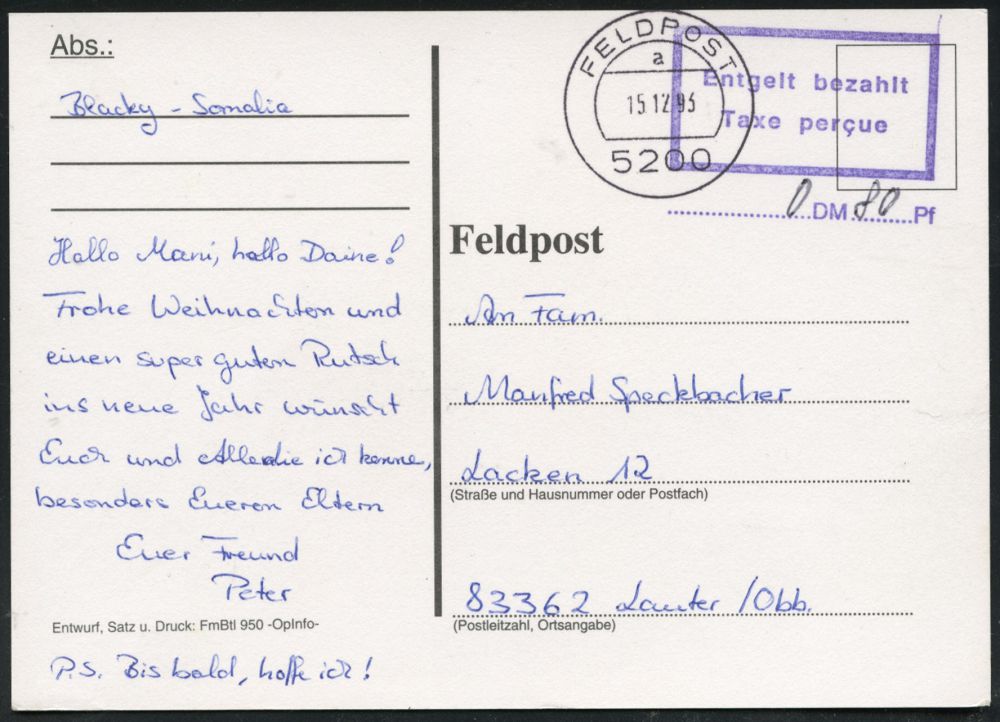 Abs.:
Blacky - Somalia
Hallo Mani, hallo Daine!
Frohe Weihnachten und
einen super guten Rutsch
ins neue Jahr wünscht
Euch und Allen die ich kenne,
besonders Eueren Eltern
Euer Freund
Peter
Entwurf, Satz u. Druck: FmBtl 950 -OpInfo-
P.S. Bis bald, hoffe ich!
FELDPOST
a
15.12.93
5200
Entgelt bezahlt
Taxe perçue
0 DM 80 Pf
Feldpost
An Fam.
Manfred Speckbacher
Lacken 12
(Straße und Hausnummer oder Postfach)
83362 Lauter /Obb.
(Postleitzahl, Ortsangabe)